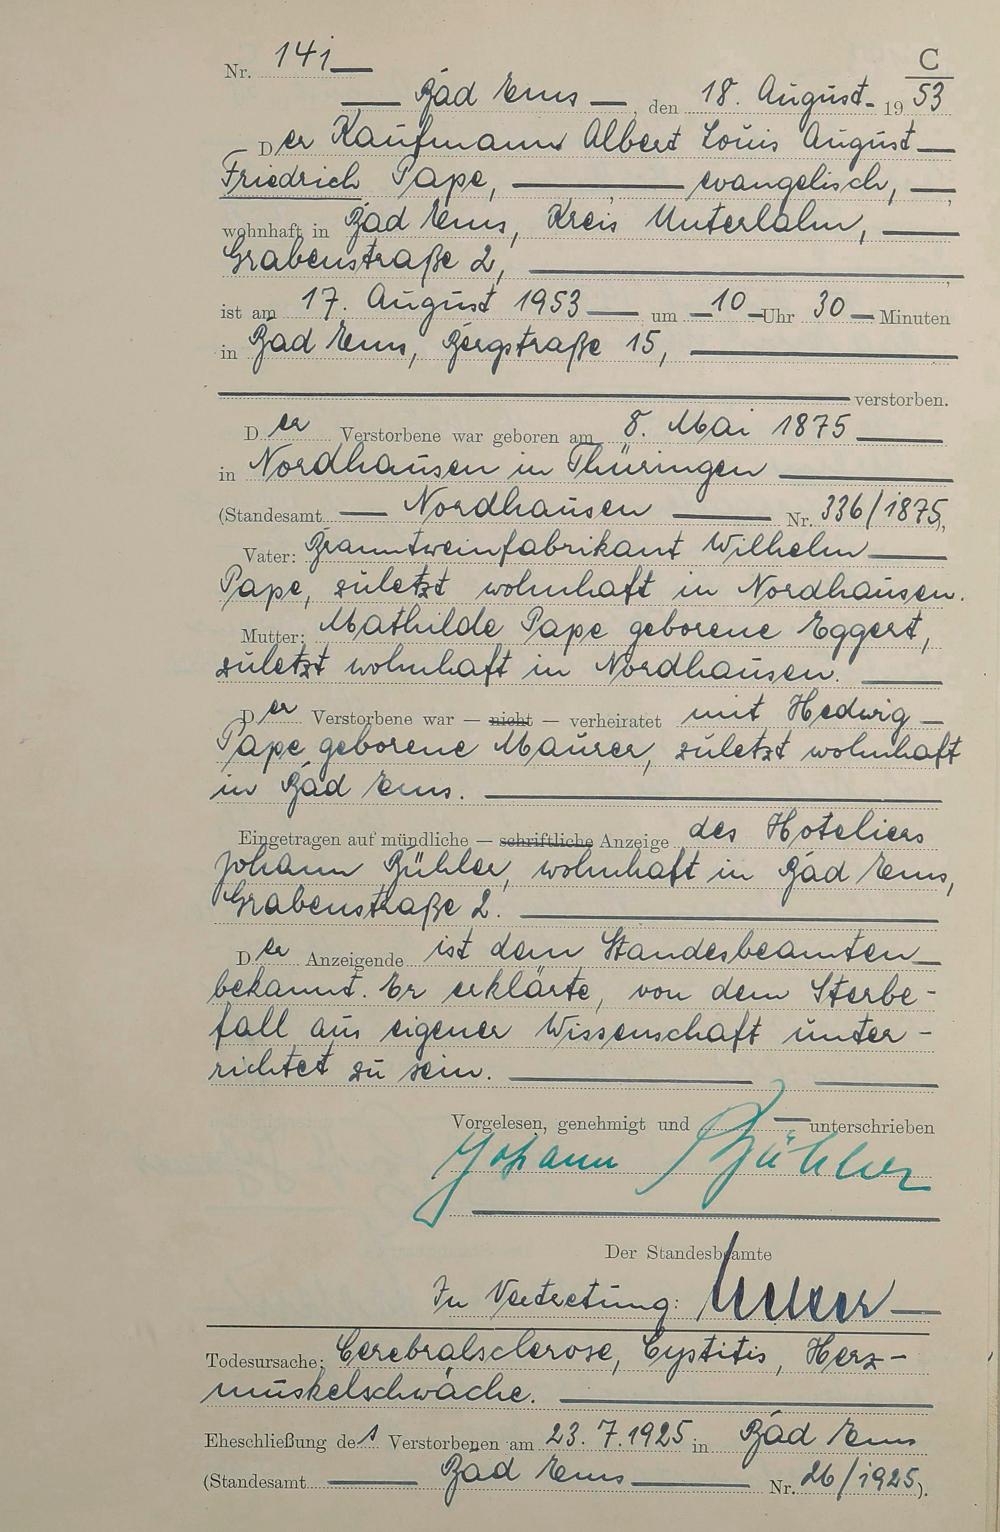 Nr. 141
C
Bad Ems, den 18. August 1953
Der Kaufmann Albert Louis August
Friedrich Pape, evangelisch,
wohnhaft in Bad Ems, Kreis Unterlahn,
Grabenstraße 2,
ist am 17. August 1953 um 10 Uhr 30 Minuten
in Bad Ems, Bergstraße 15,
verstorben.
Der Verstorbene war geboren am 8. Mai 1875
in Nordhausen in Thüringen
(Standesamt Nordhausen Nr. 336/1875),
Vater: Branntweinfabrikant Wilhelm
Pape, zuletzt wohnhaft in Nordhausen.
Mutter: Mathilde Pape geborene Eggert,
zuletzt wohnhaft in Nordhausen.
Der Verstorbene war – nicht – verheiratet mit Hedwig
Pape geborene Maurer, zuletzt wohnhaft
in Bad Ems.
Eingetragen auf mündliche – schriftliche Anzeige des Hoteliers
Johann Bühler, wohnhaft in Bad Ems,
Grabenstraße 2.
Der Anzeigende ist dem Standesbeamten
bekannt. Er erklärte, von dem Sterbe-
fall aus eigener Wissenschaft unter-
richtet zu sein.
Vorgelesen, genehmigt und unterschrieben
Johann Bühler
Der Standesbeamte
In Vertretung:
Todesursache: Cerebralsclerose, Cystitis, Herz-
muskelschwäche.
Eheschließung des Verstorbenen am 23.7.1925 in Bad Ems
(Standesamt Bad Ems Nr. 26/1925).